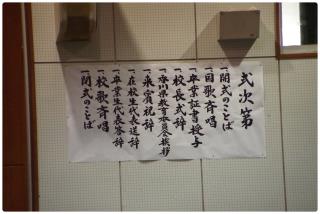 式次第
一開式のことば
一国歌斉唱
一卒業証書授与
一校長式辞
一香川県教育委員会挨拶
一来賓祝辞
一在校生代表送辞
一卒業生代表答辞
一校歌斉唱
一閉式のことば